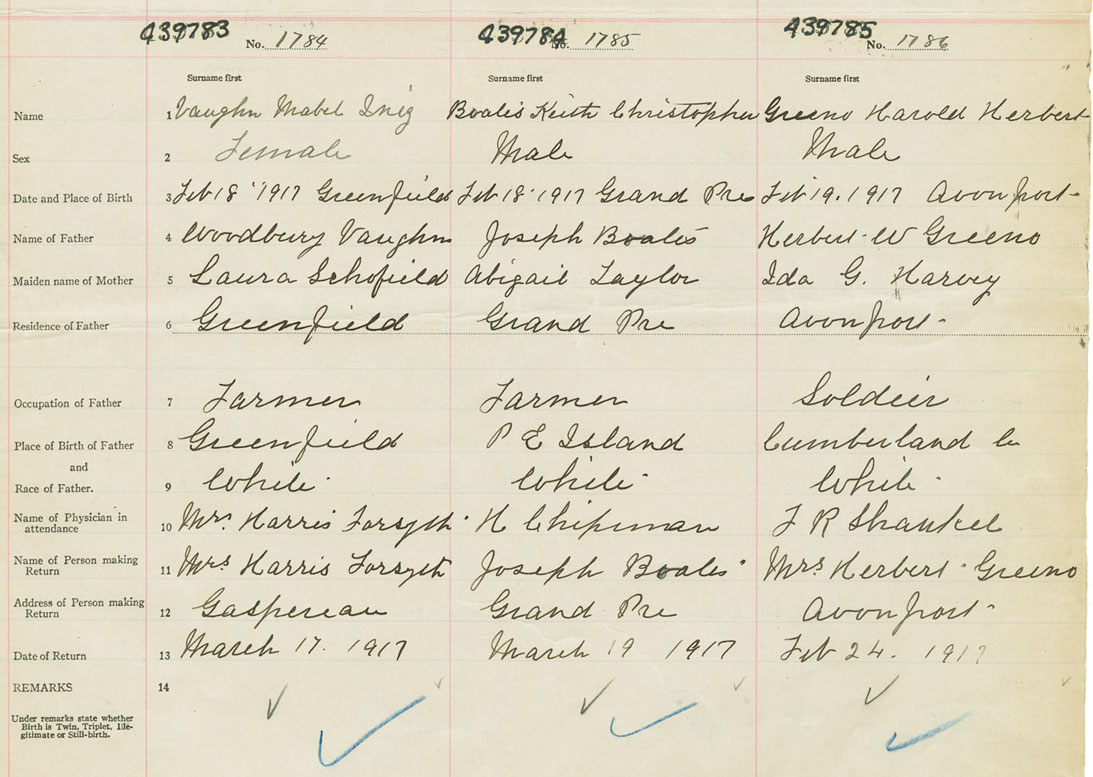 439783 439784 439785
No. 1784 No. 1785 No. 1786
Surname first Surname first Surname first
Name 1 Vaughn Mabel Inez Boates Keith Christopher Greeno Harold Herbert
Sex 2 Female Male Male
Date and Place of Birth 3 Feb 18 1917 Greenfield Feb 18 1917 Grand Pre Feb 19. 1917 Avonport
Name of Father 4 Woodbury Vaughn Joseph Boates Herbert W Greeno
Maiden name of Mother 5 Laura Schofield Abigail Taylor Ida G. Harvey
Residence of Father 6 Greenfield Grand Pre Avonport
Occupation of Father 7 Farmer Farmer Soldier
Place of Birth of Father 8 Greenfield P E Island Cumberland Co
and
Race of Father. 9 White White White
Name of Physician in attendance 10 Mrs. Harris Forsyth H Chipman F R Shankel
Name of Person making Return 11 Mrs Harris Forsyth Joseph Boates Mrs Herbert Greeno
Address of Person making Return 12 Gaspereau Grand Pre Avonport
Date of Return 13 March 17. 1917 March 19 1917 Feb 24. 1917
REMARKS 14
Under remarks state whether
Birth is Twin, Triplet, Ille-
gitimate or Still-birth.